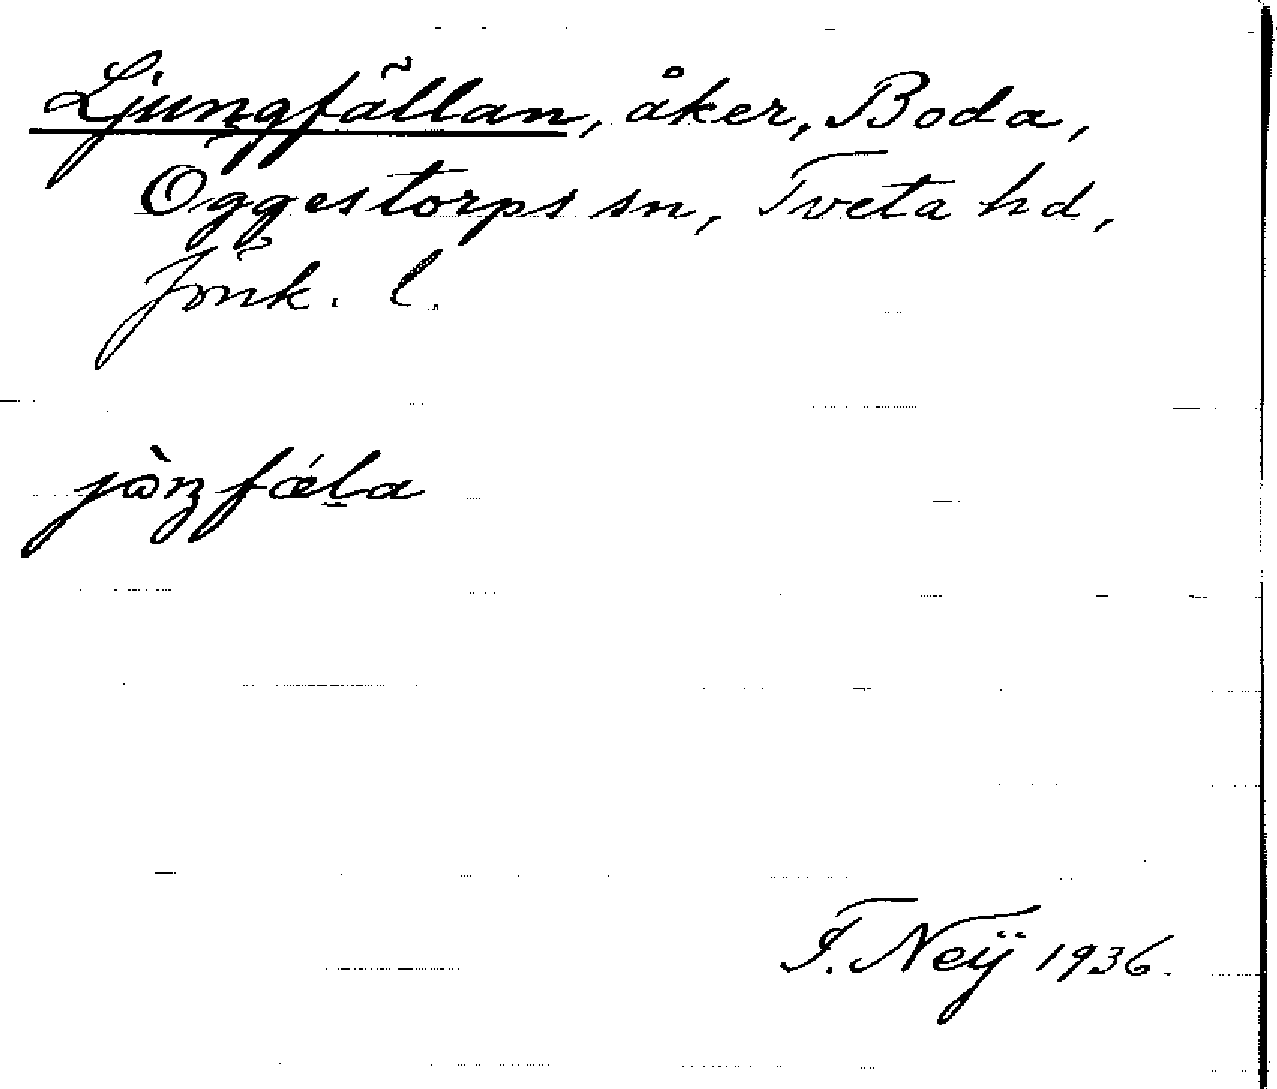 Ljungfällan, åker, Boda,
Öggestorps sn, Tveta hd,
Jönk. l.
F. Neÿ 1936.